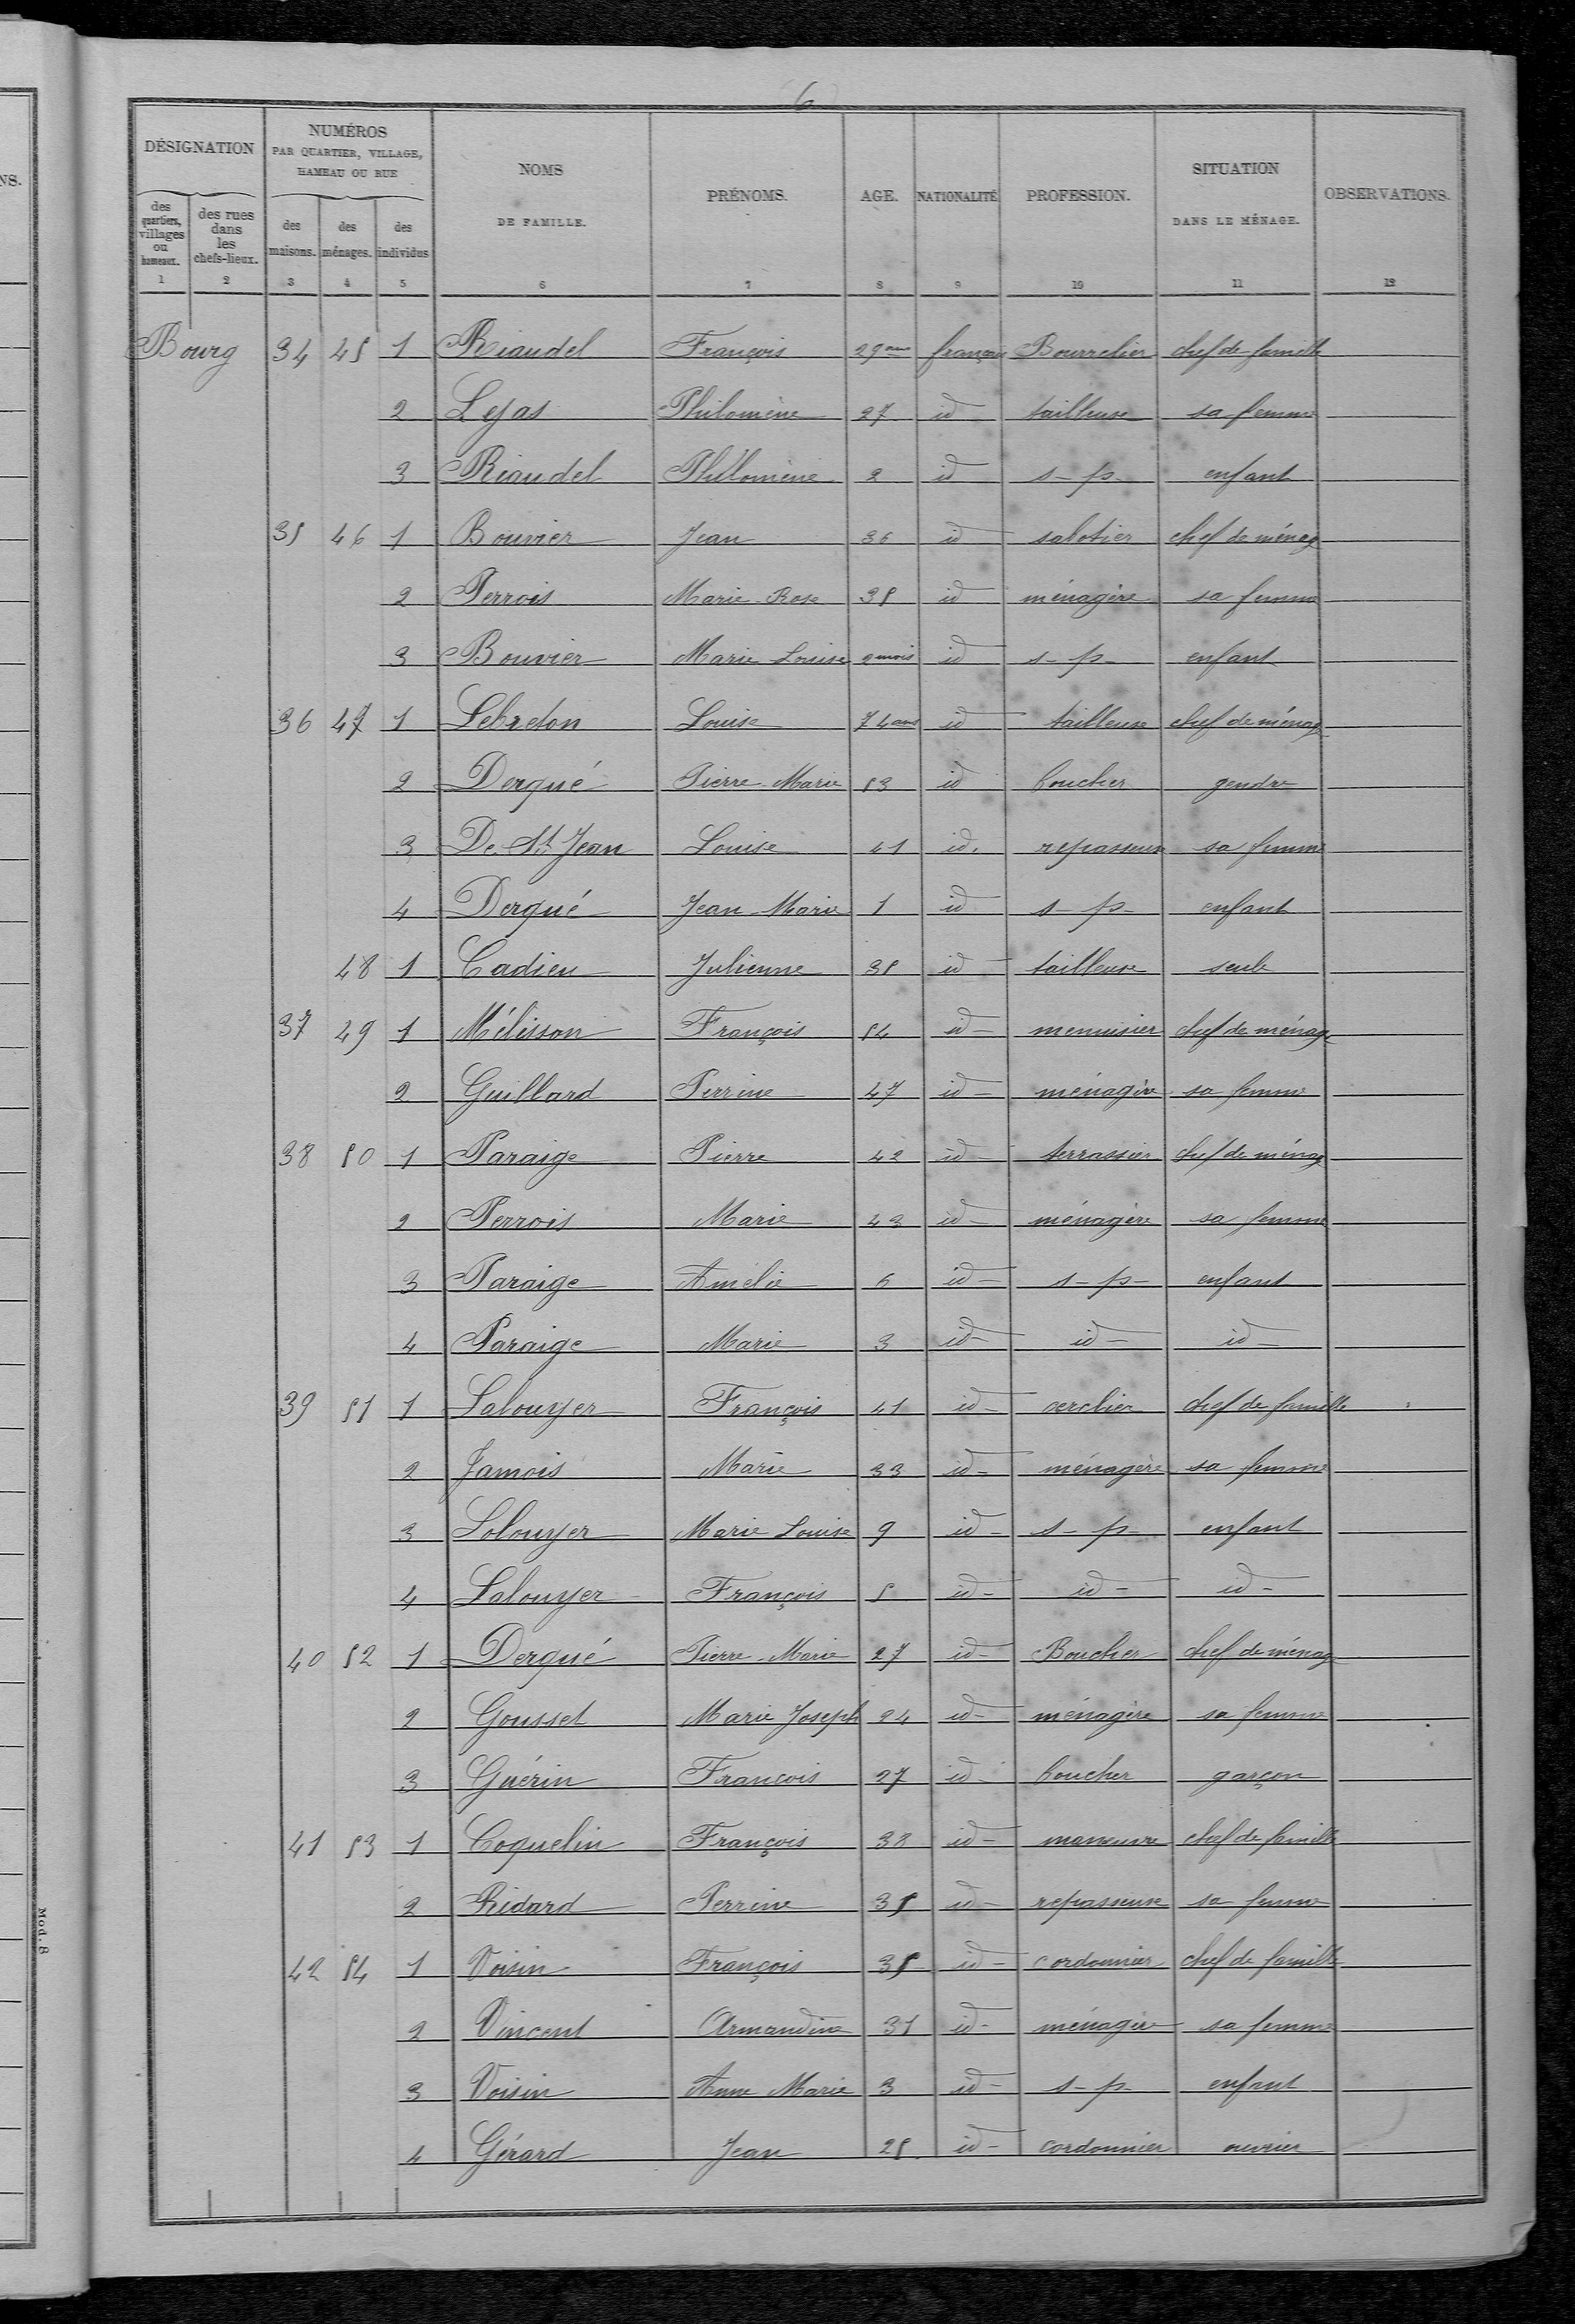 6
NS.
DÉSIGNATION
NUMÉROS
PAR QUARTIER, VILLAGE,
HAMEAU OU RUE
NOMS
DE FAMILLE.
PRÉNOMS.
AGE.
NATIONALITÉ
PROFESSION.
SITUATION
DANS LE MÉNAGE.
OBSERVATIONS.
des quartiers, villages ou hameaux.
des rues dans les chefs-lieux.
des maisons.
des ménages.
des individus
1 2 3 4 5 6 7 8 9 10 11 12
Bourg 34 45 1 Riaudel François 29 ans français Bourrelier chef de famille
2 Lejas Philomène 27 id tailleuse sa femme
3 Riaudel Philomène 2 id s-p- enfant
35 46 1 Bouvier Jean 36 id sabotier chef de ménag
2 Perrois Marie-Rose 35 id ménagère sa femme
3 Bouvier Marie Louise 2 mois id s-p- enfant
36 47 1 Lebreton Louise 74 ans id tailleuse chef de ménag
2 Dergué Pierre-Marie 53 id boucher gendre
3 De St Jean Louise 41 id. repasseuse sa femme
4 Dergué Jean-Marie 1 id s-p- enfant
48 1 Cadieu Julienne 35 id tailleuse seule
37 49 1 Mélisson François 54 id- menuisier chef de ménage
2 Guillard Perrine 47 id- ménagère sa femme
38 50 1 Paraige Pierre 42 id- terrassier chef de ménag
2 Perrois Marie 43 id- ménagère sa femme
3 Paraige Amélie 6 id- s-p- enfant
4 Paraige Marie 3 id- id- id-
39 51 1 Lalouyer François 41 id- cerclier chef de famille
2 Jamois Marie 33 id- ménagère sa femme
3 Lolouyer Marie Louise 9 id- s-p- enfant
4 Lalouyer François 5 id- id- id-
40 52 1 Dergué Pierre-Marie 27 id- Boucher chef de ménag
2 Gousset Marie Joseph 24 id- ménagère sa femme
3 Guérin François 27 id- boucher garçon
41 53 1 Coquelin François 38 id- maneuvre chef de famille
2 Ridard Perrine 35 id- repasseuse sa femme
42 54 1 Voisin François 35 id- cordonnier chef de famille
2 Vincent Armandine 31 id- ménagère sa femme
3 Voisin Anne Marie 3 id- s-p- enfant
4 Gérard Jean 25 id- cordonnier ouvrier
Mod. 8